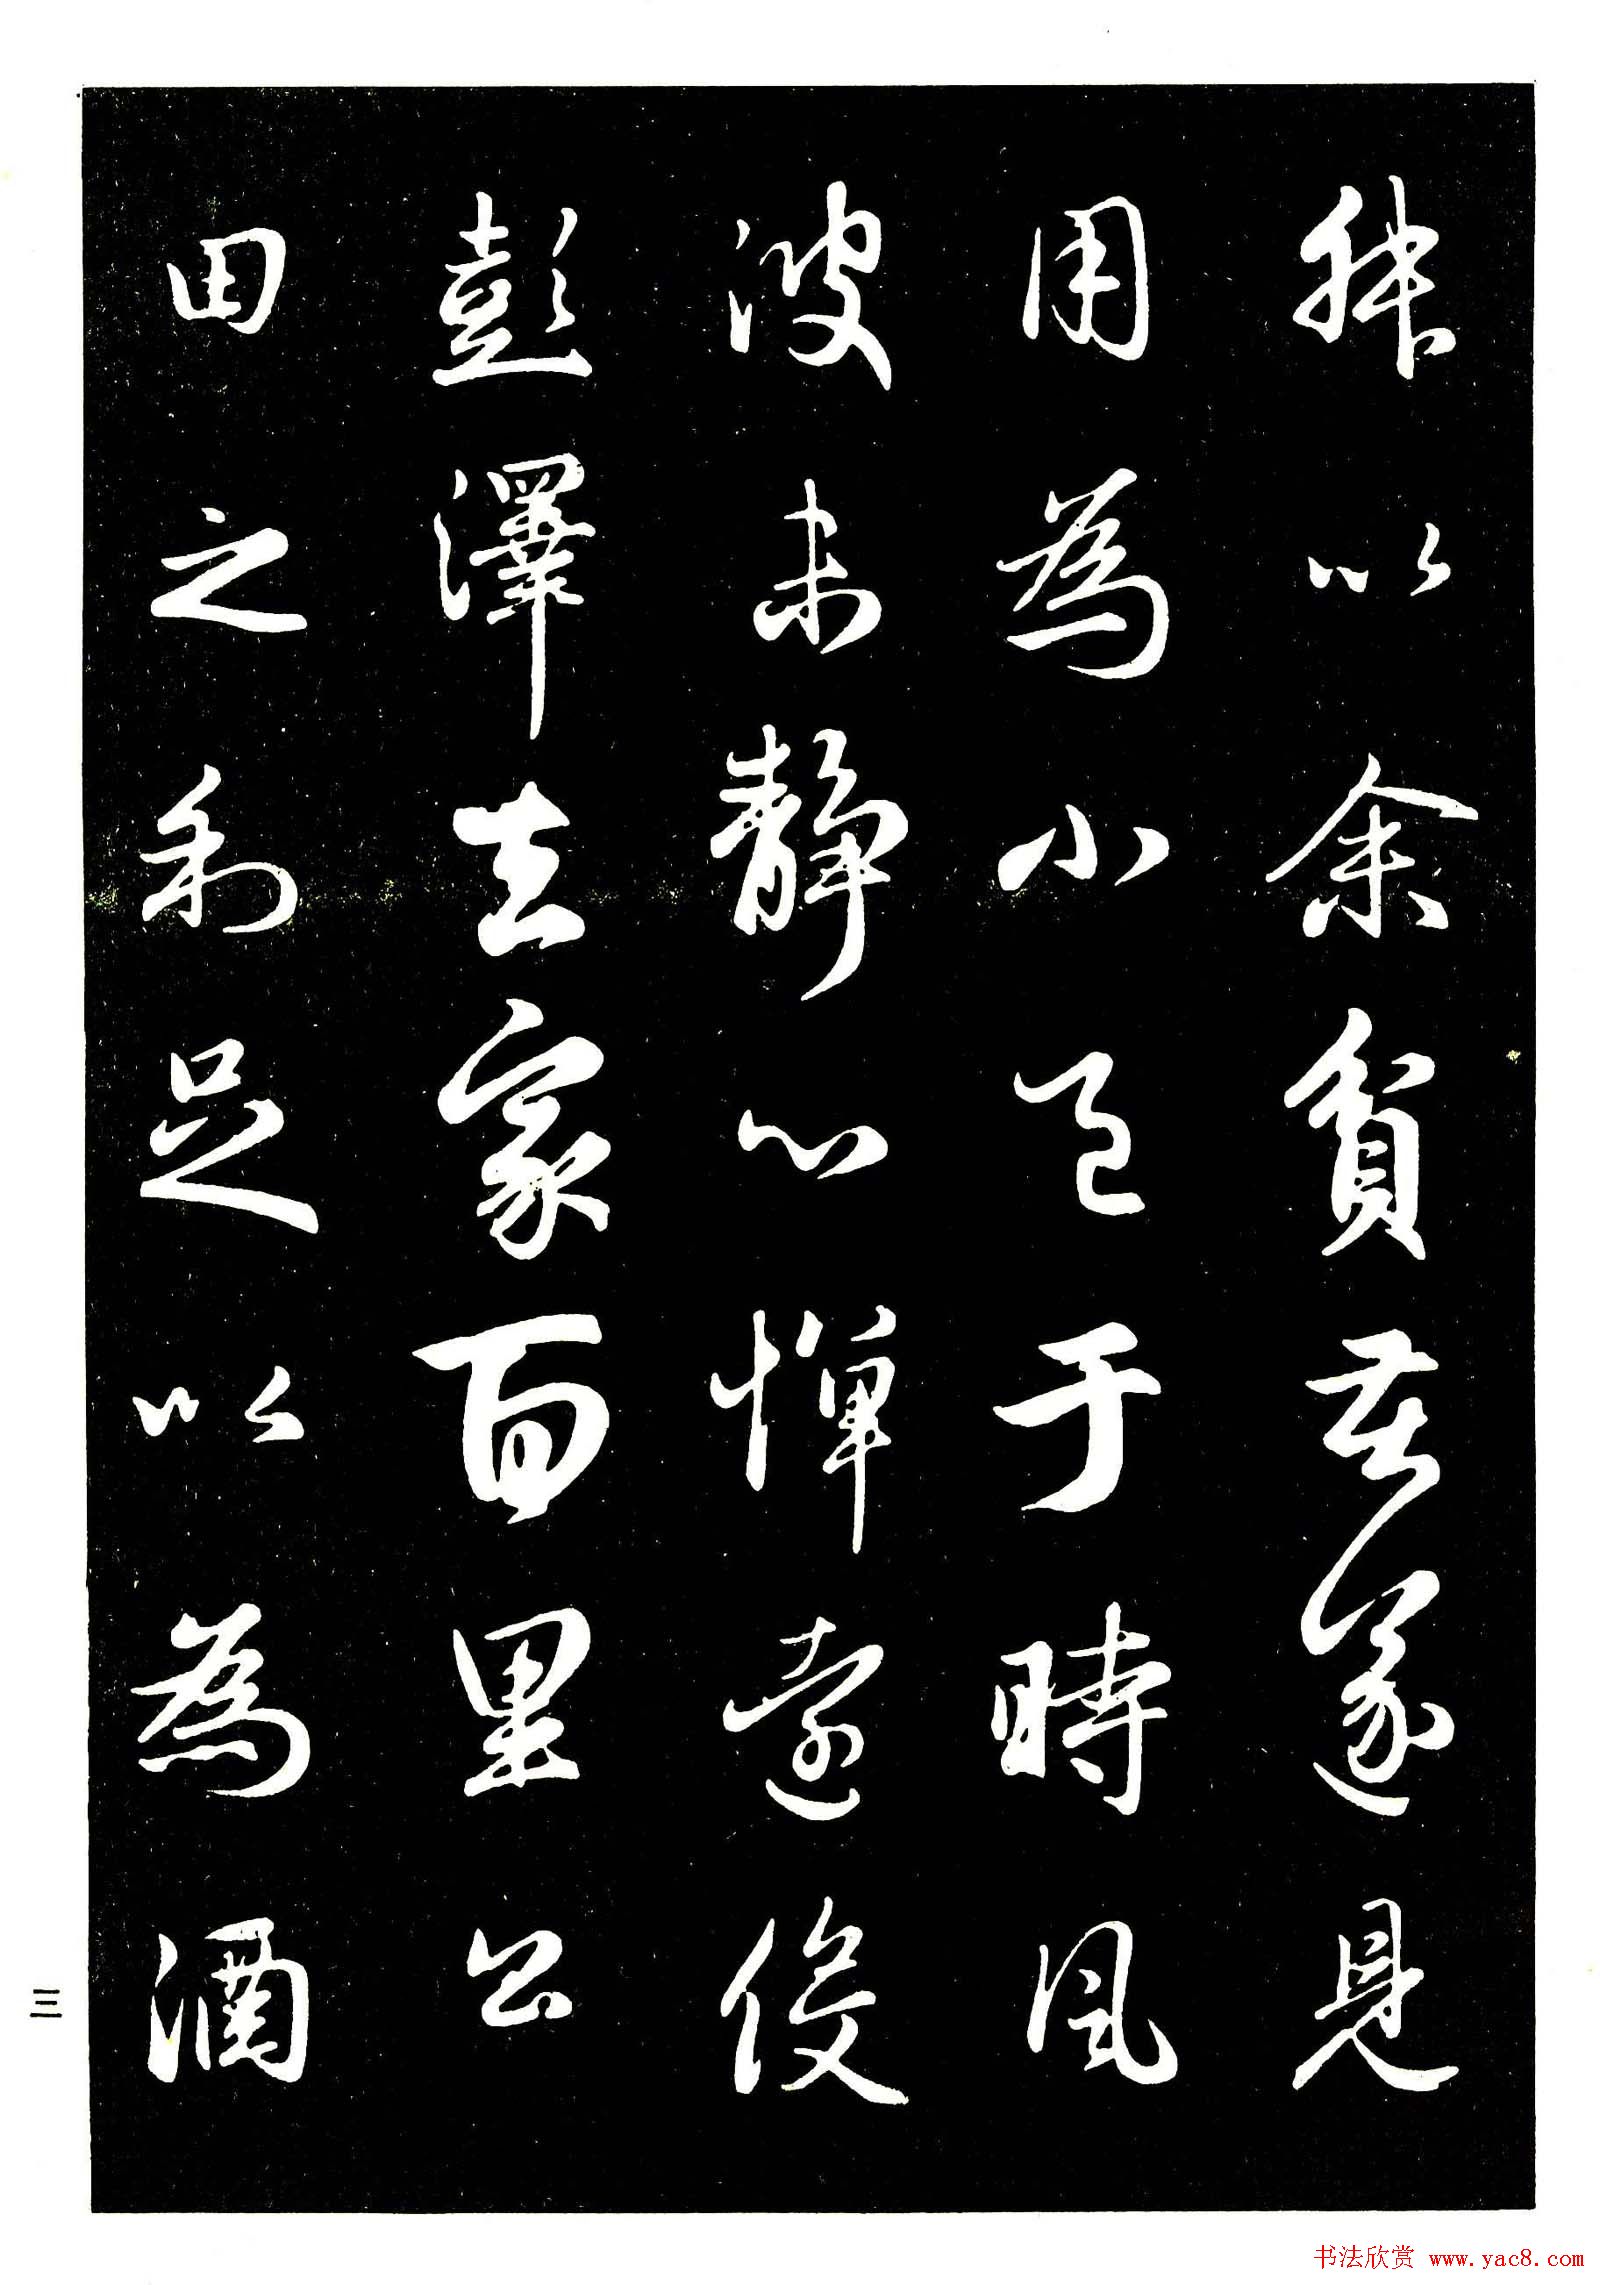 叔以余貧苦遂見
用為小邑于時風
波未静心憚遠役
彭澤去家百里公
田之利足以為酒
三
书法欣赏 www.yac8.com